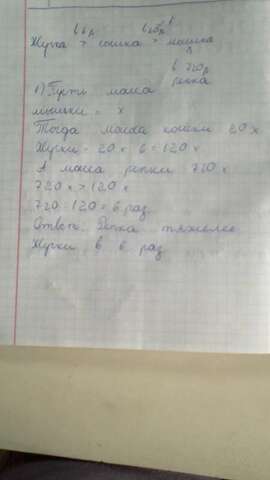 в 6 р в 20 р
Жучка > кошка > мышка
^
в 720 р
репка
1) Пусть маса
мышки = х
Тогда масса кошки 20 х
Жучки = 20 х 6 = 120 х
А масса репки 720 х
720 х > 120 х
720 : 120 = 6 раз
Ответ: Репка тяжелее
Жучки в 6 раз